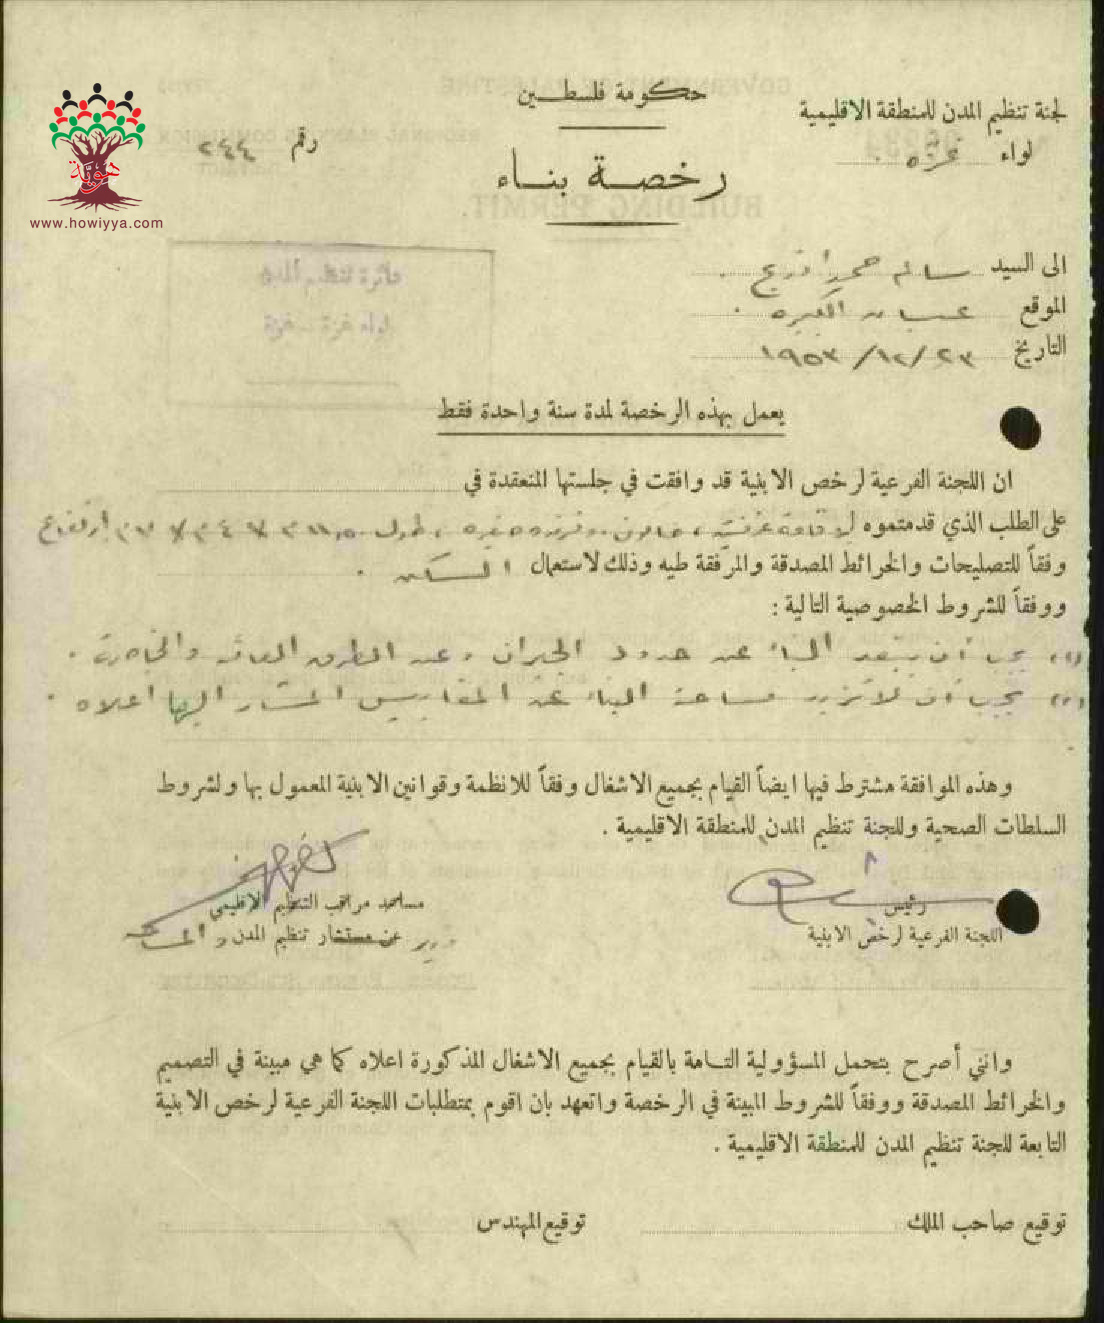 حكومة فلسطين
لجنة تنظيم المدن للمنطقة الاقليمية
لواء غزه
رقم ٢٤٤
رخصة بناء
هوية
www.howiyya.com
دائرة تنظيم المدن
لواء غزة - غزة
الى السيد سالم
الموقع عبسان الكبيره
التاريخ ٢٣/١٢/١٩٥٣
يعمل بهذه الرخصة لمدة سنة واحدة فقط
ان اللجنة الفرعية لرخص الابنية قد وافقت في جلستها المنعقدة في
على الطلب الذي قدمتموه لاقامة
وفقاً للتصليحات والخرائط المصدقة والمرفقة طيه وذلك لاستعمال السكن .
ووفقاً للشروط الخصوصية التالية :
(١) يجب أن يبتعد البناء عن حدود الجيران وعن الطرق العامه والخاصة .
(٢) يجب أن لا تزيد مساحة البناء عن المقاييس المشار اليها اعلاه .
وهذه الموافقة مشترط فيها ايضاً القيام بجميع الاشغال وفقاً للانظمة وقوانين الابنية المعمول بها ولشروط
السلطات الصحية وللجنة تنظيم المدن للمنطقة الاقليمية .
رئيس
اللجنة الفرعية لرخص الابنية
مساعد مراقب التنظيم الاقليمي
عن مستشار تنظيم المدن
وانني أصرح بتحمل المسؤولية التامة بالقيام بجميع الاشغال المذكورة اعلاه كما هي مبينة في التصميم
والخرائط المصدقة ووفقاً للشروط المبينة في الرخصة واتعهد بان اقوم بمتطلبات اللجنة الفرعية لرخص الابنية
التابعة للجنة تنظيم المدن للمنطقة الاقليمية .
توقيع صاحب الملك
توقيع المهندس